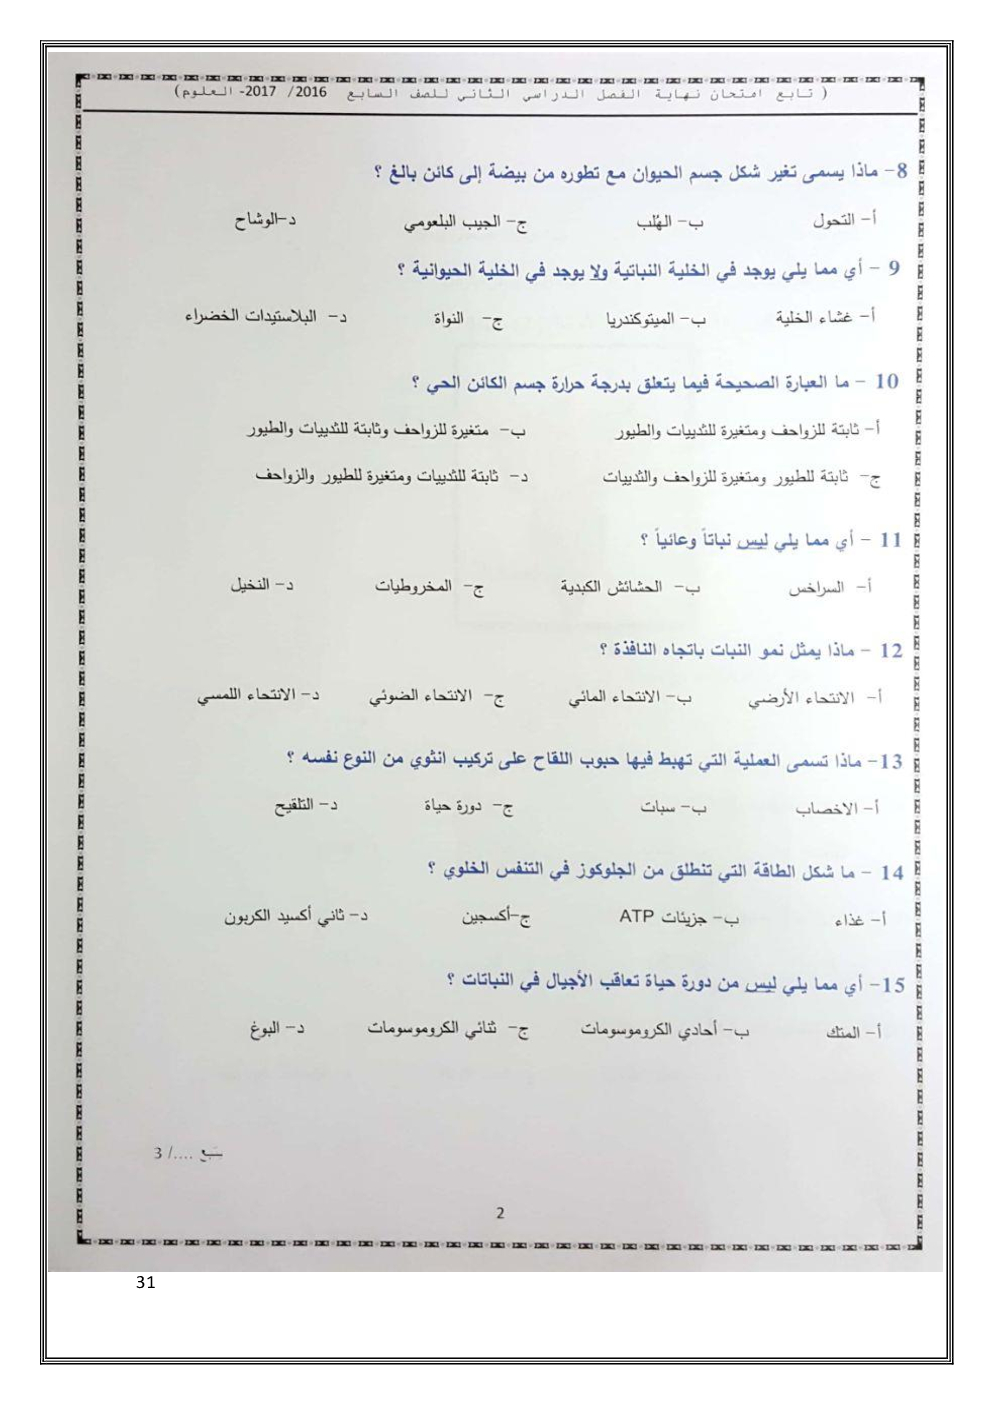 ( تابع امتحان نهاية الفصل الدراسي الثاني للصف السابع 2016/ 2017- العلوم)
8- ماذا يسمى تغير شكل جسم الحيوان مع تطوره من بيضة إلى كائن بالغ ؟
أ- التحول ب- الهُلب ج- الجيب البلعومي د-الوشاح
9 - أي مما يلي يوجد في الخلية النباتية ولا يوجد في الخلية الحيوانية ؟
أ- غشاء الخلية ب- الميتوكندريا ج- النواة د- البلاستيدات الخضراء
10 - ما العبارة الصحيحة فيما يتعلق بدرجة حرارة جسم الكائن الحي ؟
أ- ثابتة للزواحف ومتغيرة للثدييات والطيور ب- متغيرة للزواحف وثابتة للثدييات والطيور
ج- ثابتة للطيور ومتغيرة للزواحف والثدييات د- ثابتة للثدييات ومتغيرة للطيور والزواحف
11 - أي مما يلي ليس نباتاً وعائياً ؟
أ- السراخس ب- الحشائش الكبدية ج- المخروطيات د- النخيل
12 - ماذا يمثل نمو النبات باتجاه النافذة ؟
أ- الانتحاء الأرضي ب- الانتحاء المائي ج- الانتحاء الضوئي د- الانتحاء اللمسي
13- ماذا تسمى العملية التي تهبط فيها حبوب اللقاح على تركيب انثوي من النوع نفسه ؟
أ- الاخصاب ب- سبات ج- دورة حياة د- التلقيح
14 - ما شكل الطاقة التي تنطلق من الجلوكوز في التنفس الخلوي ؟
أ- غذاء ب- جزيئات ATP ج-أكسجين د- ثاني أكسيد الكربون
15- أي مما يلي ليس من دورة حياة تعاقب الأجيال في النباتات ؟
أ- المتك ب- أحادي الكروموسومات ج- ثنائي الكروموسومات د- البوغ
يتبع ..../ 3
2
31